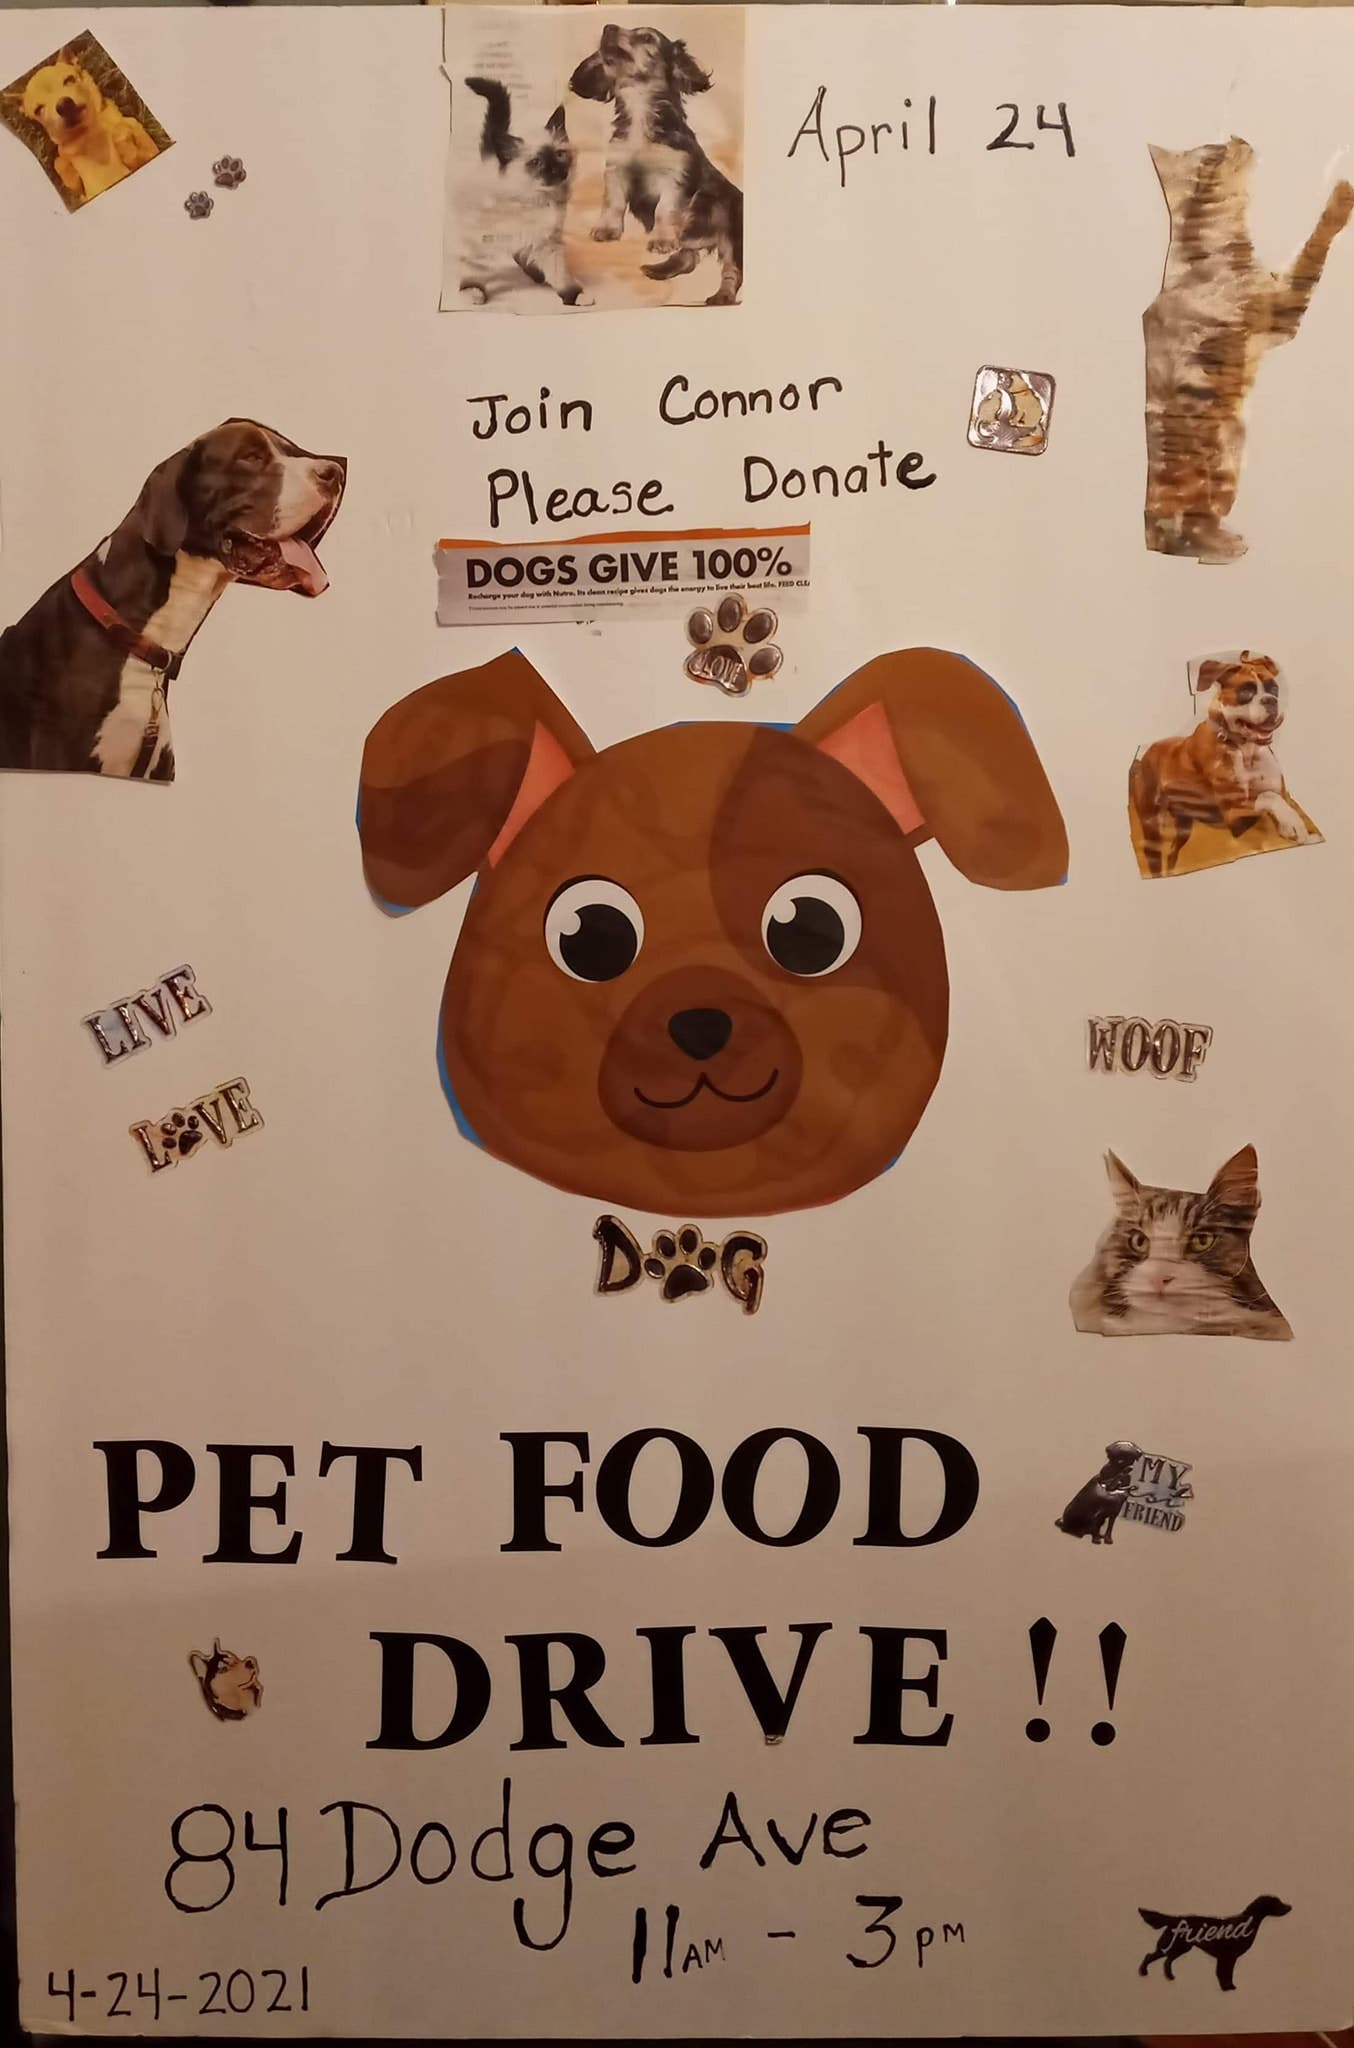 April 24
Join Connor
Please Donate
DOGS GIVE 100%
Recharge your dog with Nutro. Its clean recipe gives dogs the energy to live their best life. FEED
LOVE
LIVE
LOVE
WOOF
DOG
PET FOOD
MY
best
FRIEND
DRIVE!!
84 Dodge Ave
11AM - 3PM
friend
4-24-2021